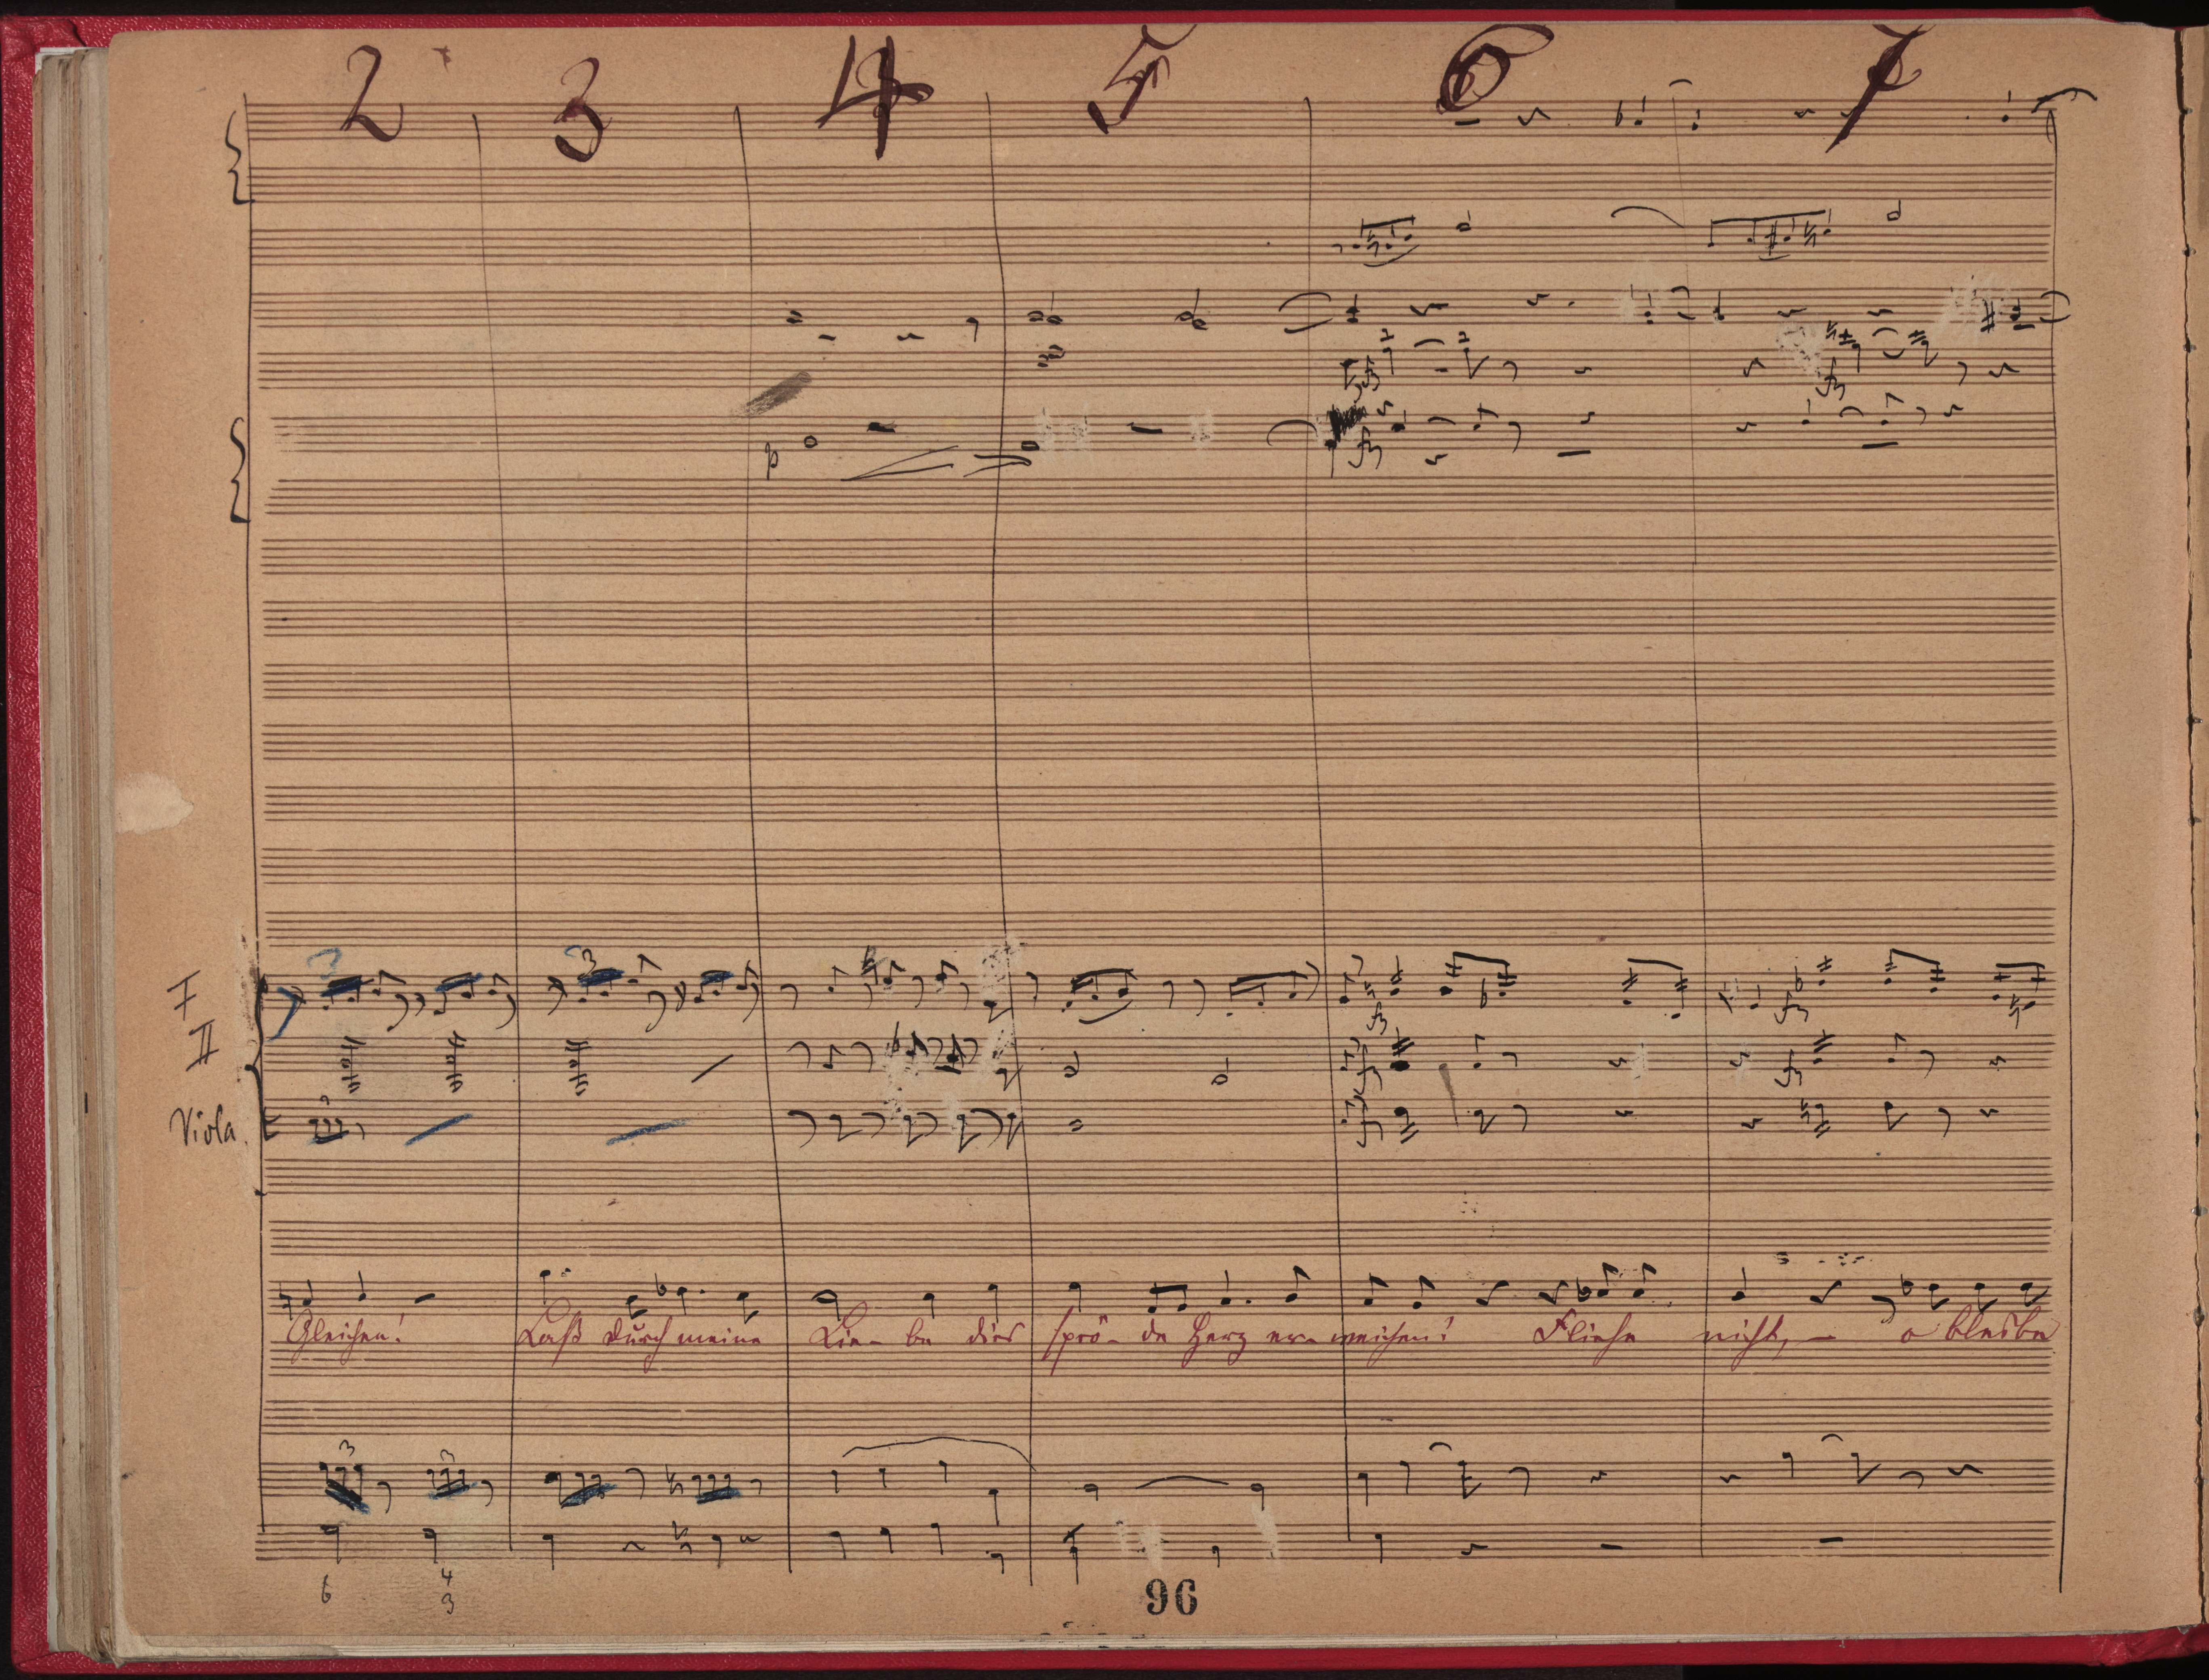 2 3 4 5 6 7
p
fz fz
3 3
I
fz fz
II
fz fz
3
Viola.
fz
Gleichen! Laß durch meine Lie- be dies sprö- de Herz er- weichen! Fliehe nicht, – o bleibe
3 3
6 4
3
96